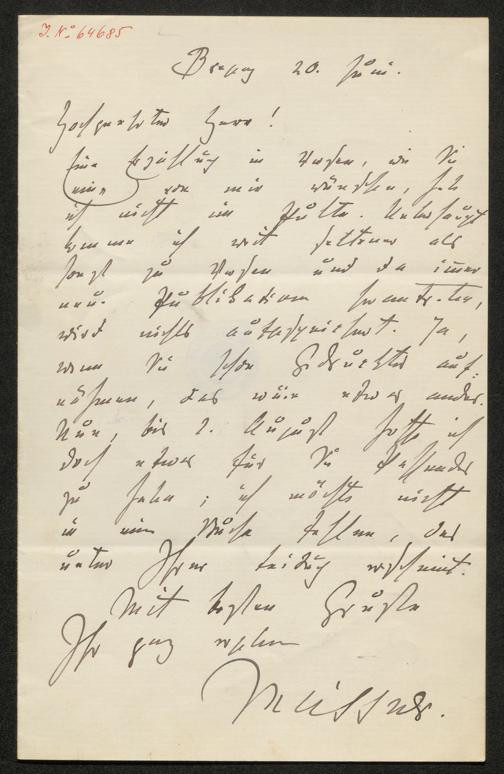 J. No 64685
Bregenz 20. Juni.
Hochgeehrter Herr!
Eine Erzählung in Versen, wie Sie
eine von mir wünschen, habe
ich nicht im Pulte. Überhaupt
komme ich weit seltener als
sonst zu Versen und da immer
neue Publikation
wird nichts aufgespeichert. Ja,
wenn Sie schon Gedrucktes auf-
nähmen, das wäre etwas andres.
Nun, bis 1. August hoffe ich
doch etwas für Sie Passendes
zu haben; ich möchte nicht
in einem Buche fehlen, das
unter Ihrer Leitung erscheint.
Mit besten Grüßen
Ihr ganz ergebener
Meissner.